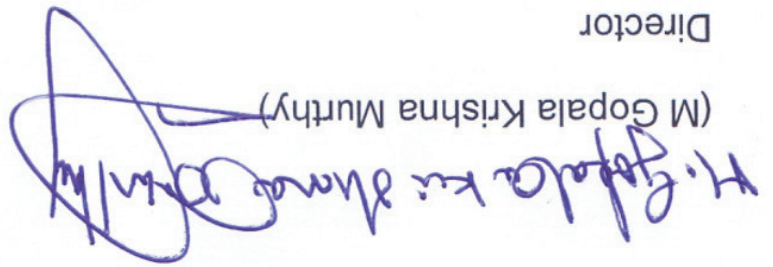 M. Gopala Krishna Murthy
(M Gopala Krishna Murthy)
Director